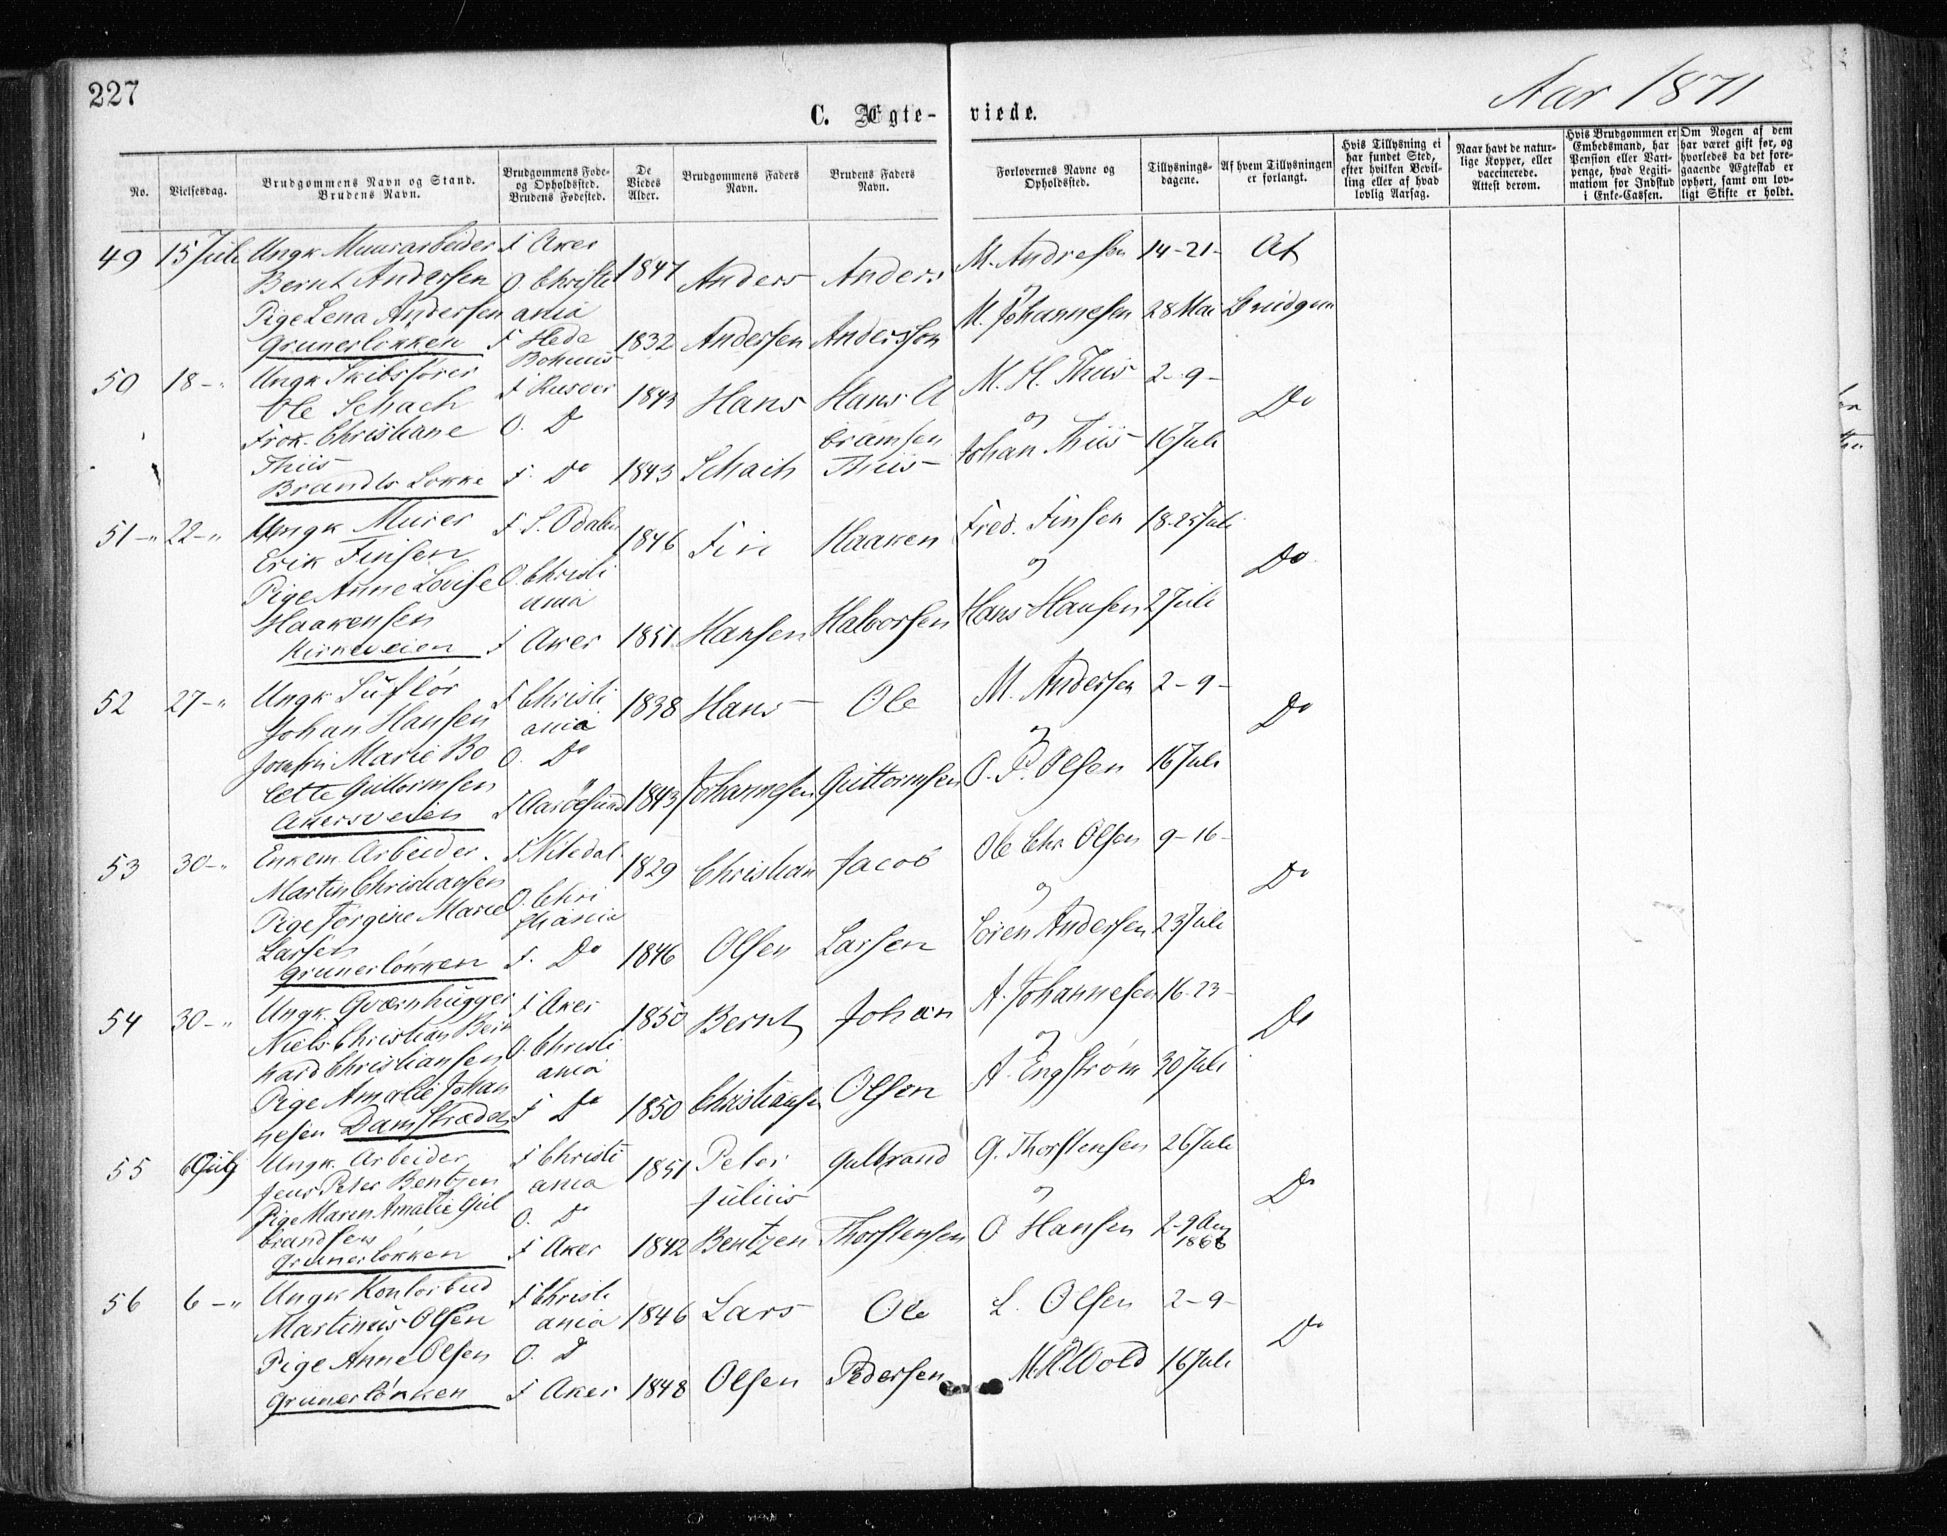 227
Aar 1871
C. Ægte- viede.
No.
Vielsesdag.
Brudgommens Navn og Stand.
Brudens Navn.
Brudgommens Føde-
og Opholdssted.
Brudens Fødested.
De
Viedes
Alder.
Brudgommens Faders
Navn.
Brudens Faders
Navn.
Forlovernes Navne og
Opholdssted.
Tillysnings-
dagene.
Af hvem Tillysningen
er forlangt.
Hvis Tillysning ei
har fundet Sted,
efter hvilken Bevil-
ling eller af hvad
lovlig Aarsag.
Naar havt de natur-
lige Kopper, eller
vaccinerede.
Attest derom.
Hvis Brudgommen er
Embedsmand, har
Pension eller Vart-
penge, hvad Legiti-
matiom for Indskud
i Enke-Cassen.
Om Nogen af dem
har været gift før, og
hvorledes da det fore-
gaaende Ægteskab er
ophørt, samt om lov-
ligt Skifte er holdt.
49 15 Juli Ungk Muurarbeider F Aker 1847 Anders Anders M. Andresen 14-21- Af
Bernt Andersen O. Christi
Pige Lena Andersen ania og M. Johannesen 28 Mai Brudgom
Grunerløkken F Hede 1832 Andersen Andersson
Bohuus
50 18-" Ungk Skibsfører F Rusøer 1843 Hans Hans A M. H. Thiis 2-9- Do
Ole Schach O. Do
Frøk. Christiane bramsen og
Thiis F. Do 1843 Schach Thiis Johan Thiis 16 Juli
Brandts Løkke
51-" 22-" Ungk Murer F S. Odalen 1846 Fin Haaken Fred. Finsen 18-25 Juli Do
Erik Finsen
Pige Anne Lovise O. Christi og
Haakensen ania
Kirkeveien F Aker 1851 Hansen Halvorsen Hans Hansen 2 Juli
52 27-" Ungk Suflør F Christi 1838 Hans Ole M. Andersen 2-9- Do
Johan Hansen ania
Jomfru Marie Bo O. Do og
lette Guttormsen O. P. Olsen 16 Juli
Akersveien F Aarøesund 1843 Johannesen Guttormsen
53 30-" Enkem. Arbeider. F Nitedal 1829 Christian Jacob Ole Chr. Olsen 9-16- Do
Martin Christiansen O. Chri og
Pige Jørgine Marie stiania
Larsen F. Do 1846 Olsen Larsen Søren Andersen 23 Juli
Grunerløkken
54 30-" Ungk. Qværnhugger F Aker 1850 Bernt Johan A. Johannesen 16-23- Do
Niels Christian Bern O. Christi og
hard Christiansen ania A. Engstrøm 30 Juli
Pige Amalie Johan F Do 1850 Christiansen Olsen
nesen Damstrædet
55 6 Ungk. Arbeider F Christi 1851 Peter Gulbrand G. Thorstensen 26 Juli Do
Jens Peter Bentzen ania Julius
Pige Maren Amalie Gul O. Do og
brandsen F Aker 1842 Bentzen Thorstensen O Hansen 2-9 Aug
Grunerløkken
56 6-" Ungk Kontorbud F Christi 1846 Lars Ole L. Olsen 2-9- Do
Martinus Olsen ania
Pige Anne Olsen O. D og
Grunerløkken F Aker 1848 Olsen Pedersen Wold 16 Juli